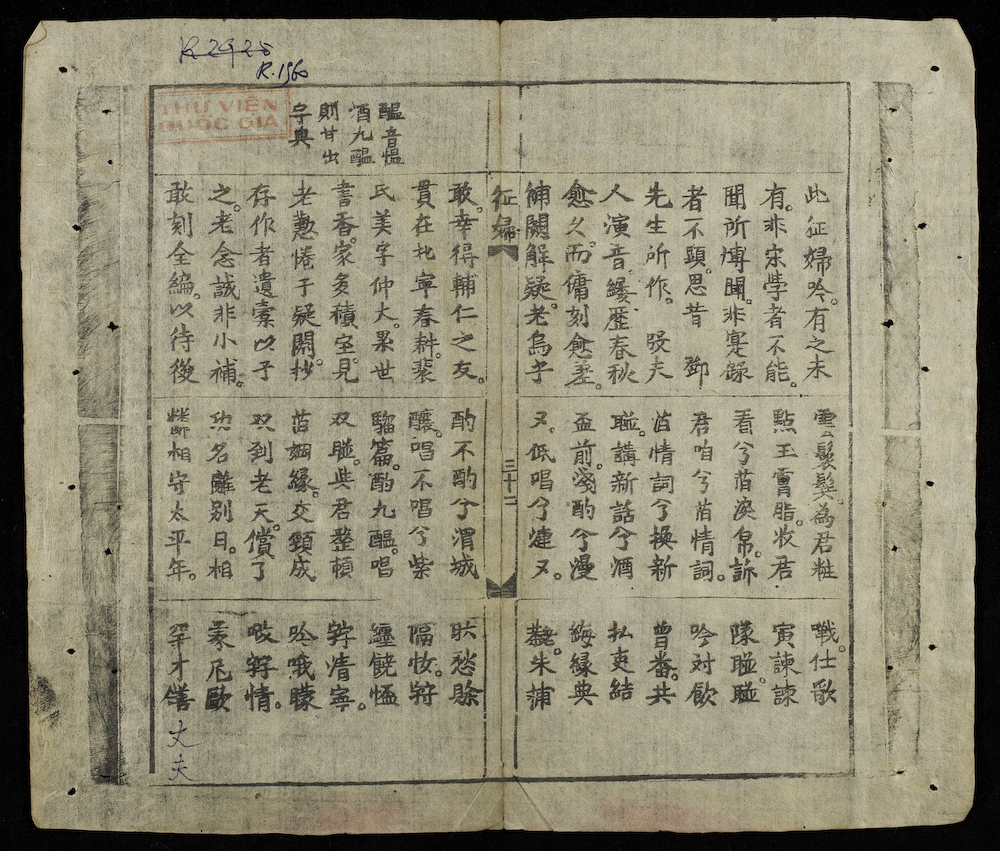 R 2925
R.1960
THƯ VIỆN
QUỐC GIA
此征婦吟。有之未
有。非宋學者不能。
聞所博聞。非寔錄
者不顕。思昔 鄧
先生所作。 段夫
人演音。歷春秋
愈久。而傭刻愈差。
補闕解疑。老烏乎
雲鬟鬢。為君粧
點玉膏脂。妝君
看兮舊淚帛。訴
君咱兮舊情詞。
舊情詞兮換新
聯。講新話兮酒
盃前。淺酌兮漫
又。低唱兮漣又。
戰。仕歌
寅諫諫
隊
吟对飲
曾番。共
払吏結
緣典
朱蒲
征婦
三十二
醞音慍
酒九醞
則甘出
字典
敢。幸得輔仁之友。
貫在北寧春耕。裴
氏美字仲大。累世
書香。家多積室。見
老懃惓于疑閼。抄
存作者遺藁。以予
之老念。誠非小補。
敢刻全編。以待後
酌不酌兮渭城
釀。唱不唱兮柴
騮篇。酌九醞。唱
双聯。與君整頓
舊姻緣。交頸成
双到老天。償了
功名離別日。相
憐相守太平年。
愁賒
隔
饒
清寧。
吟哦
情。
才
丈夫